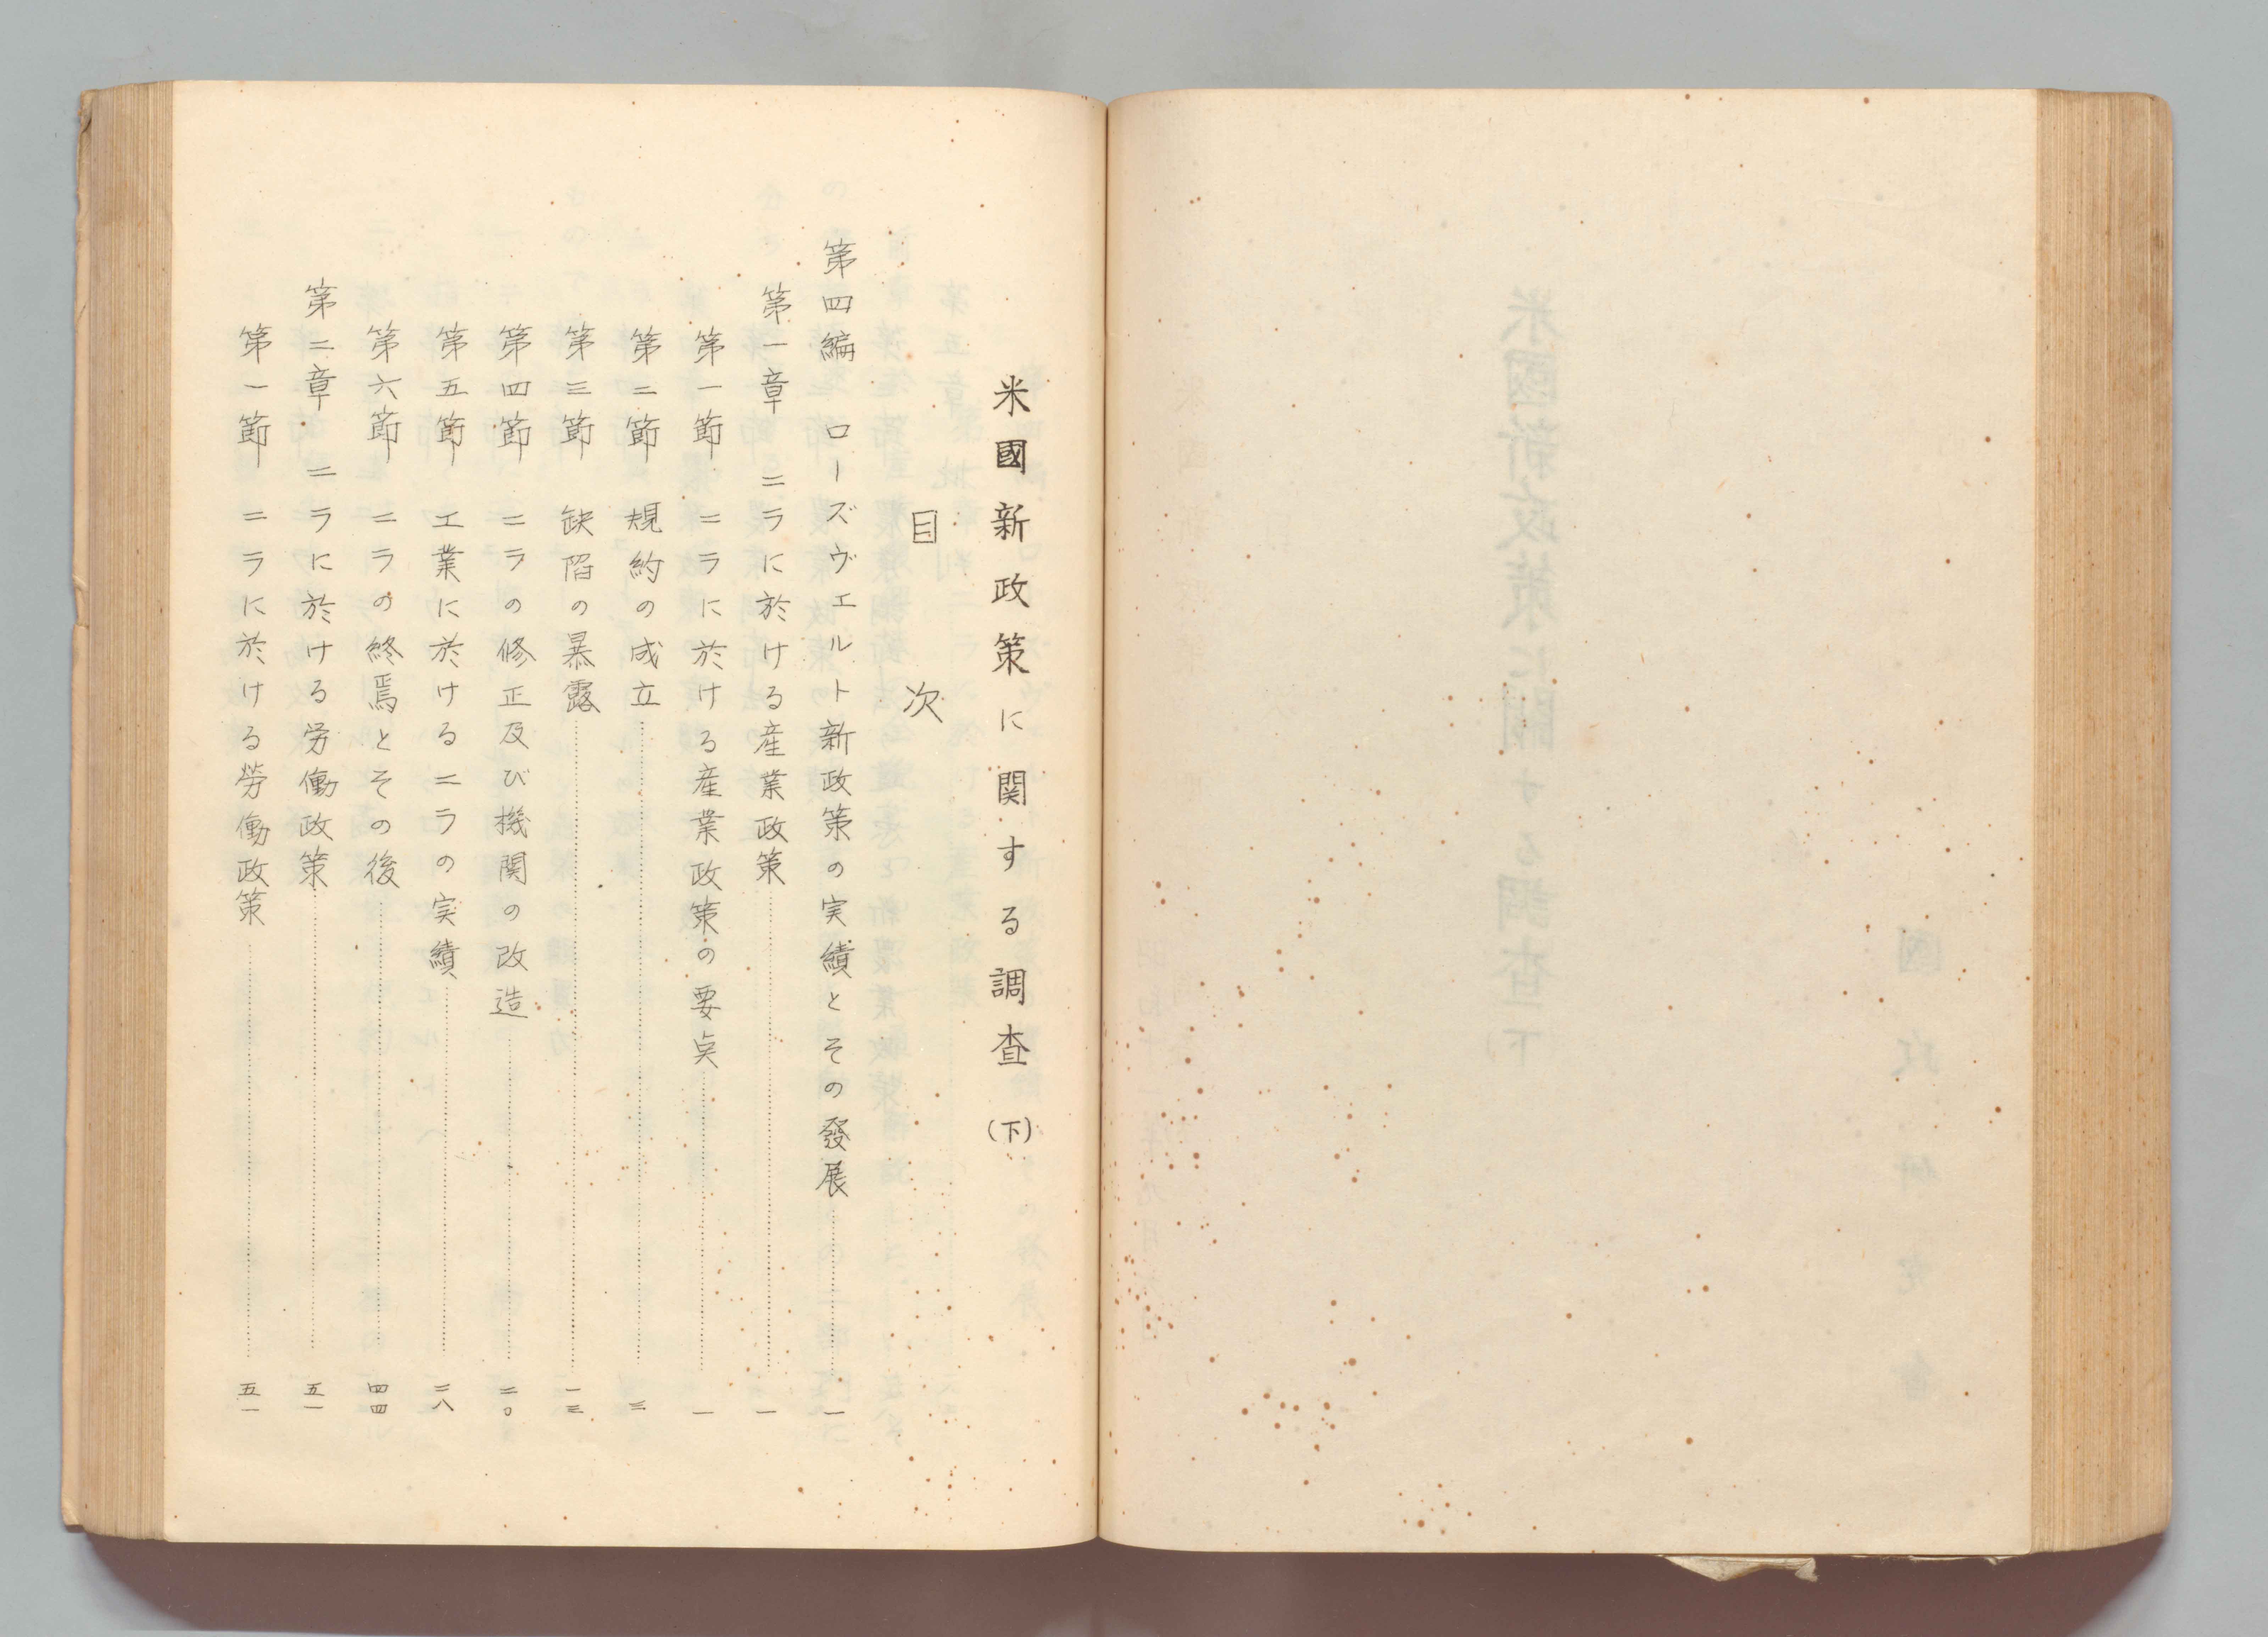 米國新政策に関する調査（下）
目次
第四編 ローズヴエルト新政策の実績とその發展 一
第一章 ニラに於ける産業政策 一
第一節 ニラに於ける産業政策の要点 一
第二節 規約の成立 三
第三節 缺陷の暴露 一三
第四節 ニラの修正及び機関の改造 二〇
第五節 工業に於けるニラの実績 二八
第六節 ニラの終焉とその後 四四
第二章 ニラに於ける労働政策 五一
第一節 ニラに於ける勞働政策 五一